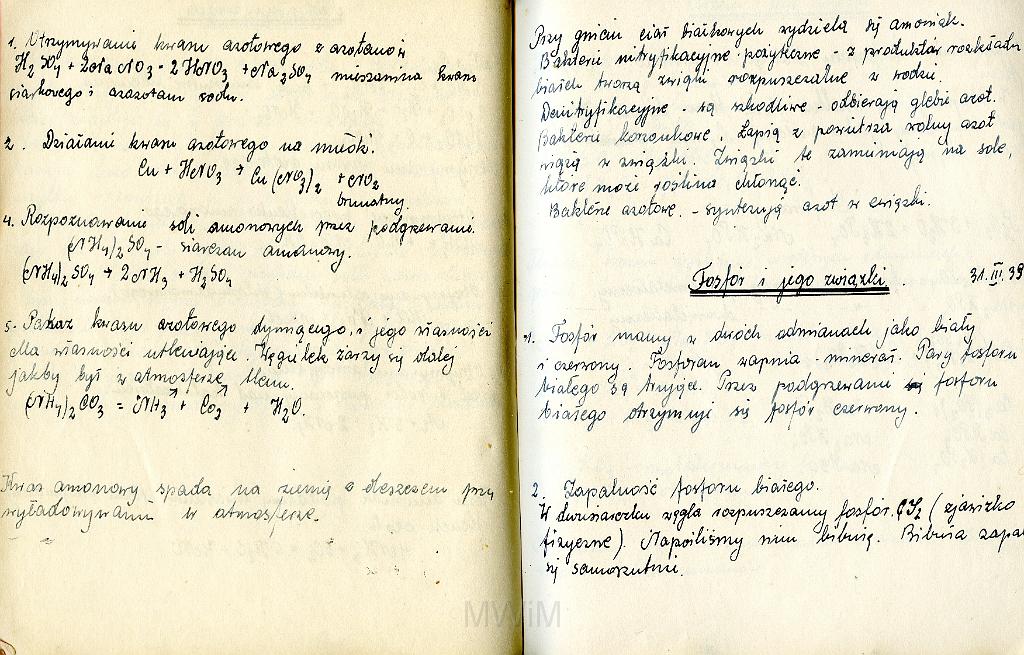 1. Otrzymywanie kwasu azotowego z azotanów
H2SO4 + 2NaNO3 = 2HNO3 + Na2SO4 mieszanina kwasu
siarkowego i azazotanu sodu.
2. Działanie kwasu azotowego na miedź.
Cu + HNO3 → Cu(NO3)2 + NO2
brunatny
4. Rozpoznawanie soli amonowych przez podgrzewanie.
(NH4)2SO4 - siarczan amonowy.
(NH4)2SO4 → 2NH3 + H2SO4
5. Pokaz kwasu azotowego dymiącego, i jego własności
Ma własności utleniające. Węgielek żarzy się dalej
jakby był w atmosferze tlenu.
(NH4)2CO3 = NH3 + CO2 + H2O.
Kwas amonowy spada na ziemię z deszczem przy
wyładowywaniu w atmosferze.
Przy gniciu ciał białkowych wydziela się amoniak.
Bakterie nitryfikacyjne - pożyteczne - z produktów rozkładu
białek tworzą związki rozpuszczalne w wodzie.
Denitryfikacyjne - są szkodliwe - odbierają glebie azot.
Bakterie korzonkowe. Łapią z powietrza wolny azot
wiążą w związki. Związki te zamieniają na sole,
które może roślina chłonąć.
Bakterie azotowe. - syntezują azot w związki.
Fosfór i jego związki 31.III.39
1. Fosfór mamy w dwóch odmianach jako biały
i czerwony. Fosforan wapnia - minerał. Pary fosforu
białego są trujące. Przez podgrzewanie fosforu
białego otrzymuje się fosfór czerwony.
2. Zapalność fosforu białego.
W dwusiarczku węgla rozpuszczamy fosfór. CS2 (zjawisko
fizyczne). Napoiliśmy nim bibułę. Bibuła zapal
się samorzutnie.
MWiM